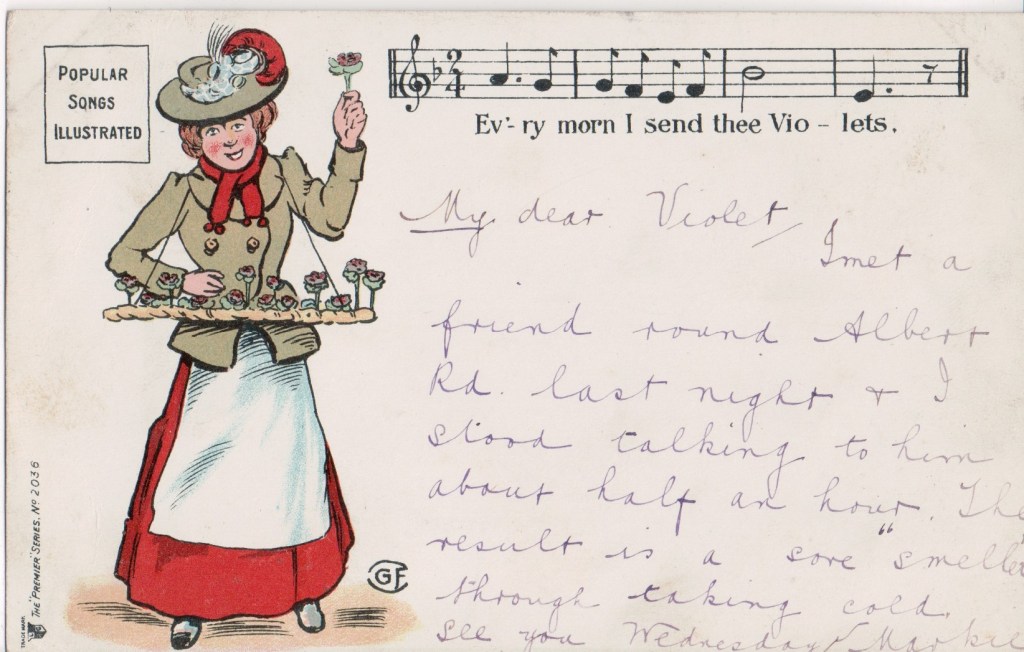 POPULAR
SONGS
ILLUSTRATED
2
4
Ev'-ry morn I send thee Vio-lets.
My dear Violet
I met a
friend round Albert
Rd. last night & I
stood talking to him
about half an hour. The
result is a sore "smeller
through taking cold.
See you Wednesday
GF
THE "PREMIER" SERIES. No 2036
TRADE MARK